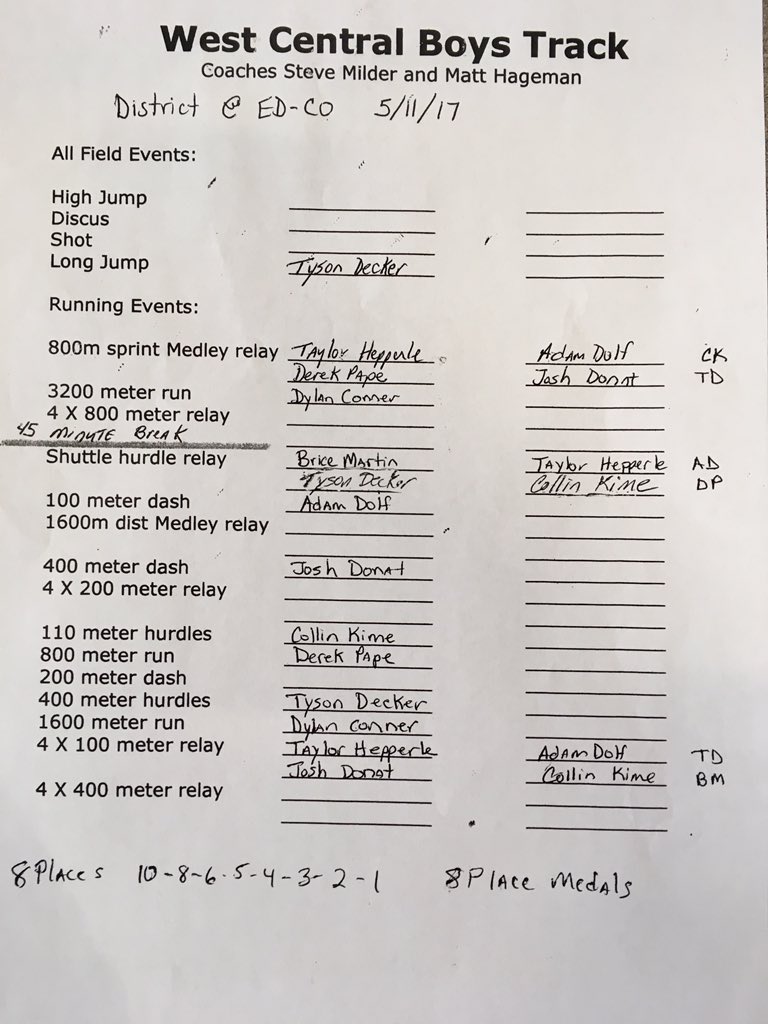 West Central Boys Track
Coaches Steve Milder and Matt Hageman
District @ ED-CO 5/11/17
All Field Events:
High Jump
Discus
Shot
Long Jump Tyson Decker
Running Events:
800m sprint Medley relay Taylor Hepperle Adam Dolf CK
Derek Pape Josh Donat TD
3200 meter run Dylan Conner
4 X 800 meter relay
45 minute Break
Shuttle hurdle relay Brice Martin Taylor Hepperle AD
Tyson Decker Collin Kime DP
100 meter dash Adam Dolf
1600m dist Medley relay
400 meter dash Josh Donat
4 X 200 meter relay
110 meter hurdles Collin Kime
800 meter run Derek Pape
200 meter dash
400 meter hurdles Tyson Decker
1600 meter run Dylan Conner
4 X 100 meter relay Taylor Hepperle Adam Dolf TD
Josh Donat Collin Kime BM
4 X 400 meter relay
8 Places 10-8-6-5-4-3-2-1 8 Place Medals